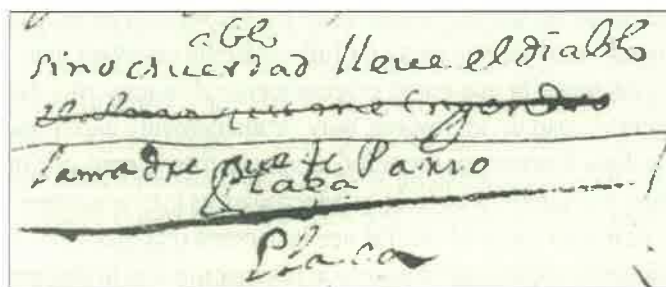 able
sino es uerdad lleue el diablo
que me
la madre que te Pario
Plaça
Plaça